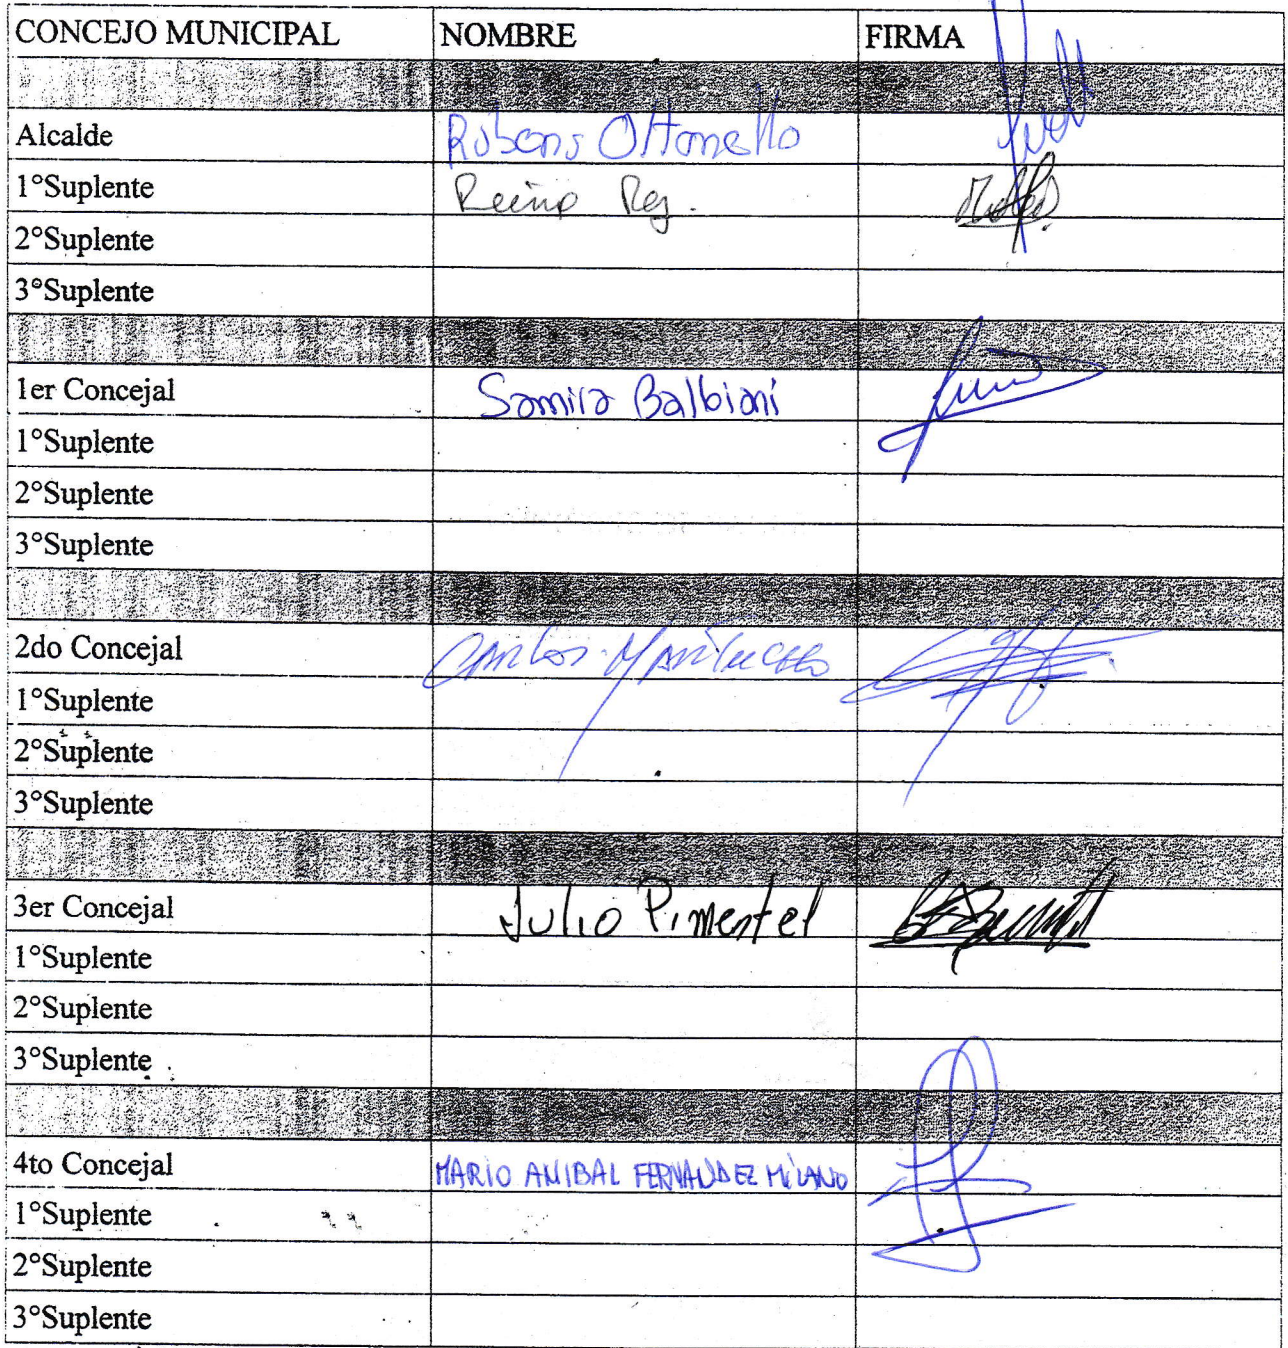 CONCEJO MUNICIPAL NOMBRE FIRMA
Alcalde Rubens Ottonello
1°Suplente Rey.
2°Suplente
3°Suplente
1er Concejal Samira Balbiani
1°Suplente
2°Suplente
3°Suplente
2do Concejal Carlos
1°Suplente
2°Suplente
3°Suplente
3er Concejal Julio Pimentel
1°Suplente
2°Suplente
3°Suplente
4to Concejal MARIO ANIBAL FERNANDEZ MILANO
1°Suplente
2°Suplente
3°Suplente